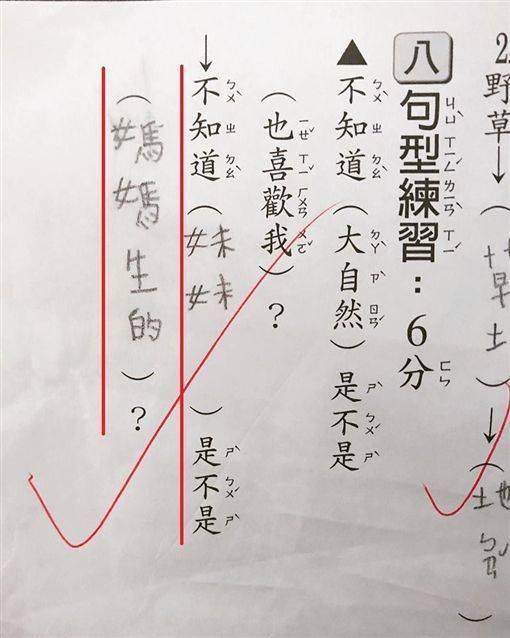 2.野草→(草地)→(地ㄅㄢˇ)
八 句型練習：6分
▲不知道（大自然）是不是
（也喜歡我）？
→不知道（妹妹）是不是
（媽媽生的）？